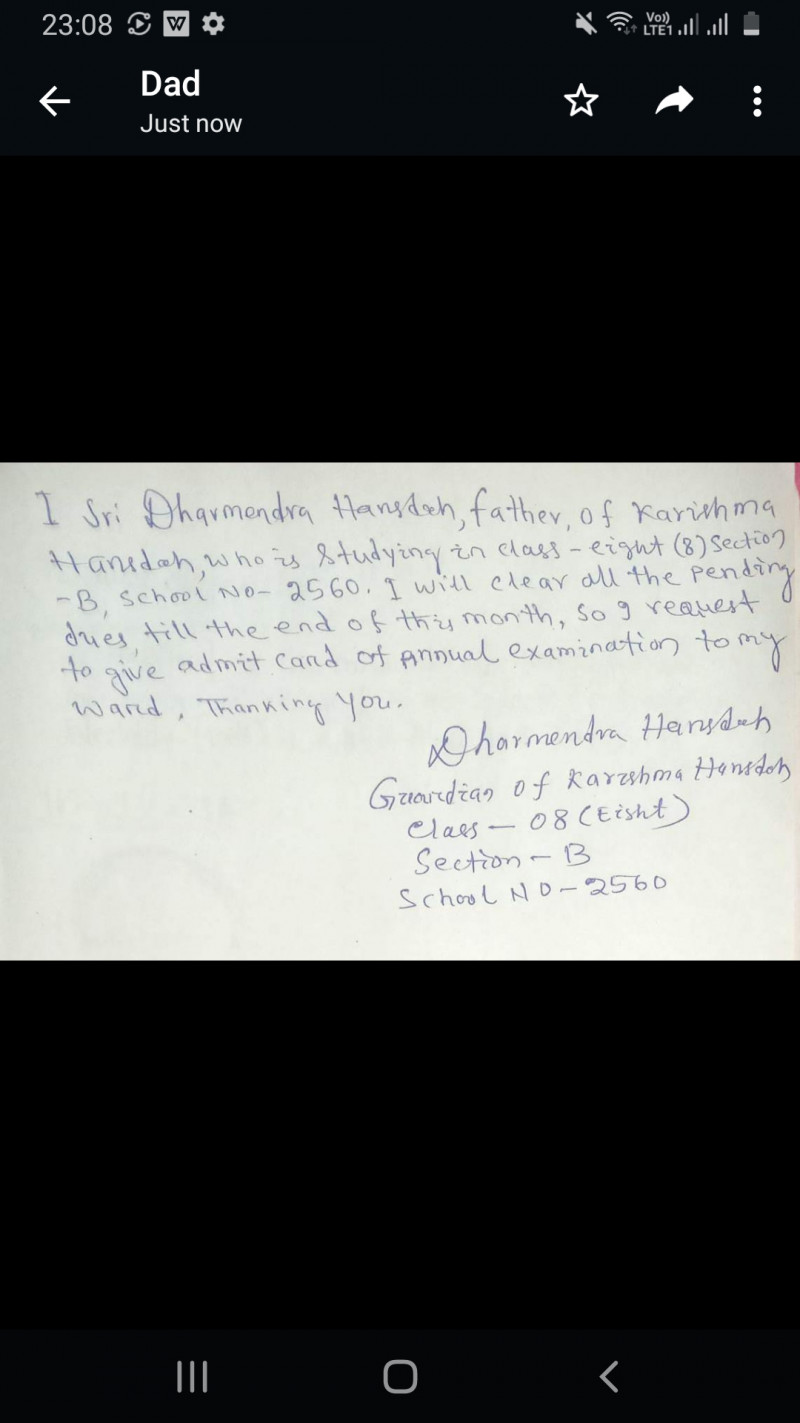 23:08
Vo)) LTE1
Dad
Just now
I Sri Dharmendra Hansdah, father, of Karishma
Hansdah, who is studying in class - eight (8) Section
- B, School No - 2560. I will clear all the pending
dues, till the end of this month, so I request
to give admit card of Annual examination to my
ward, Thanking you.
Dharmendra Hansdah
Guardian of Karishma Hansdah
Class - 08 (Eight)
Section - B
School NO - 2560